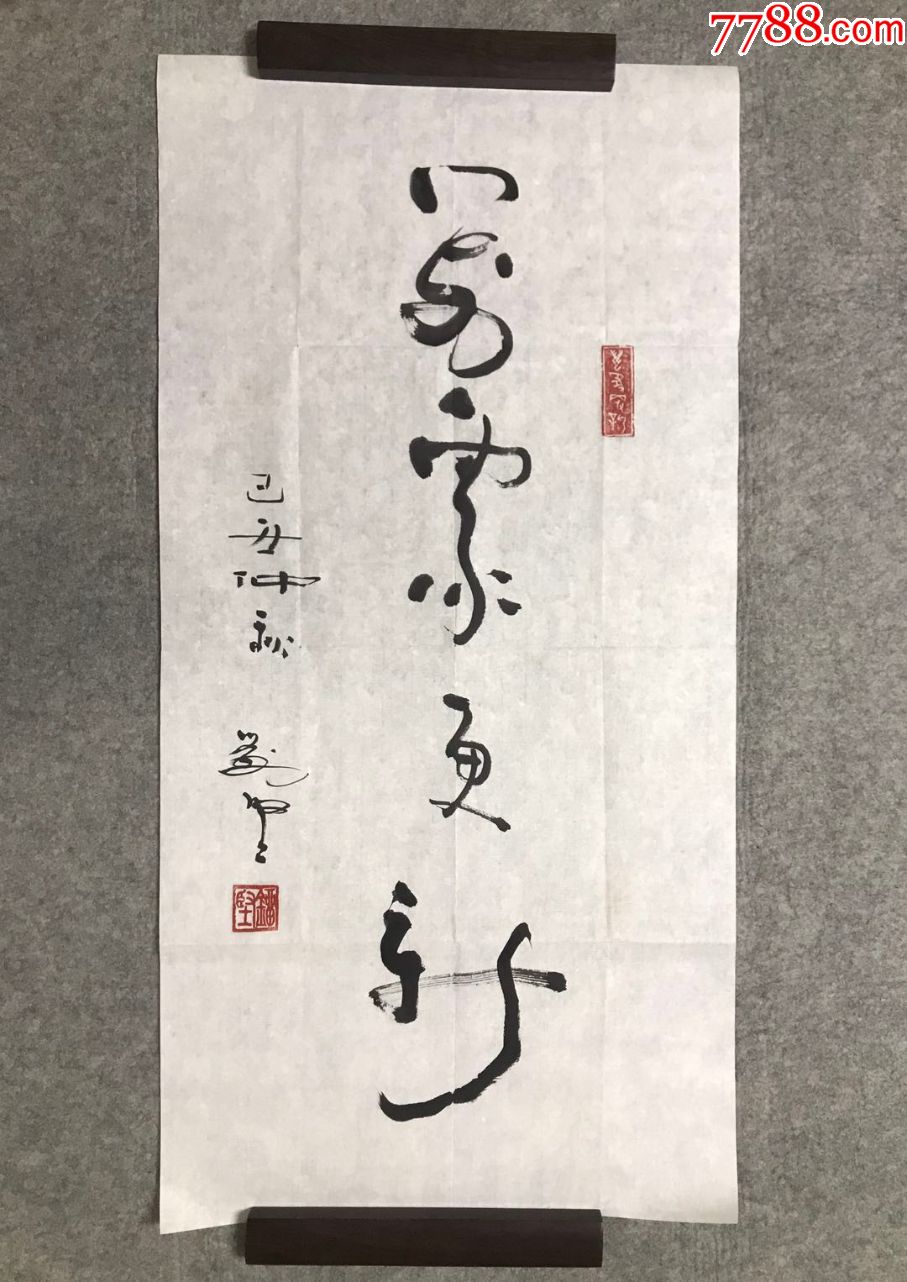 7788.com
萬象更新
己丑仲秋 劉堅